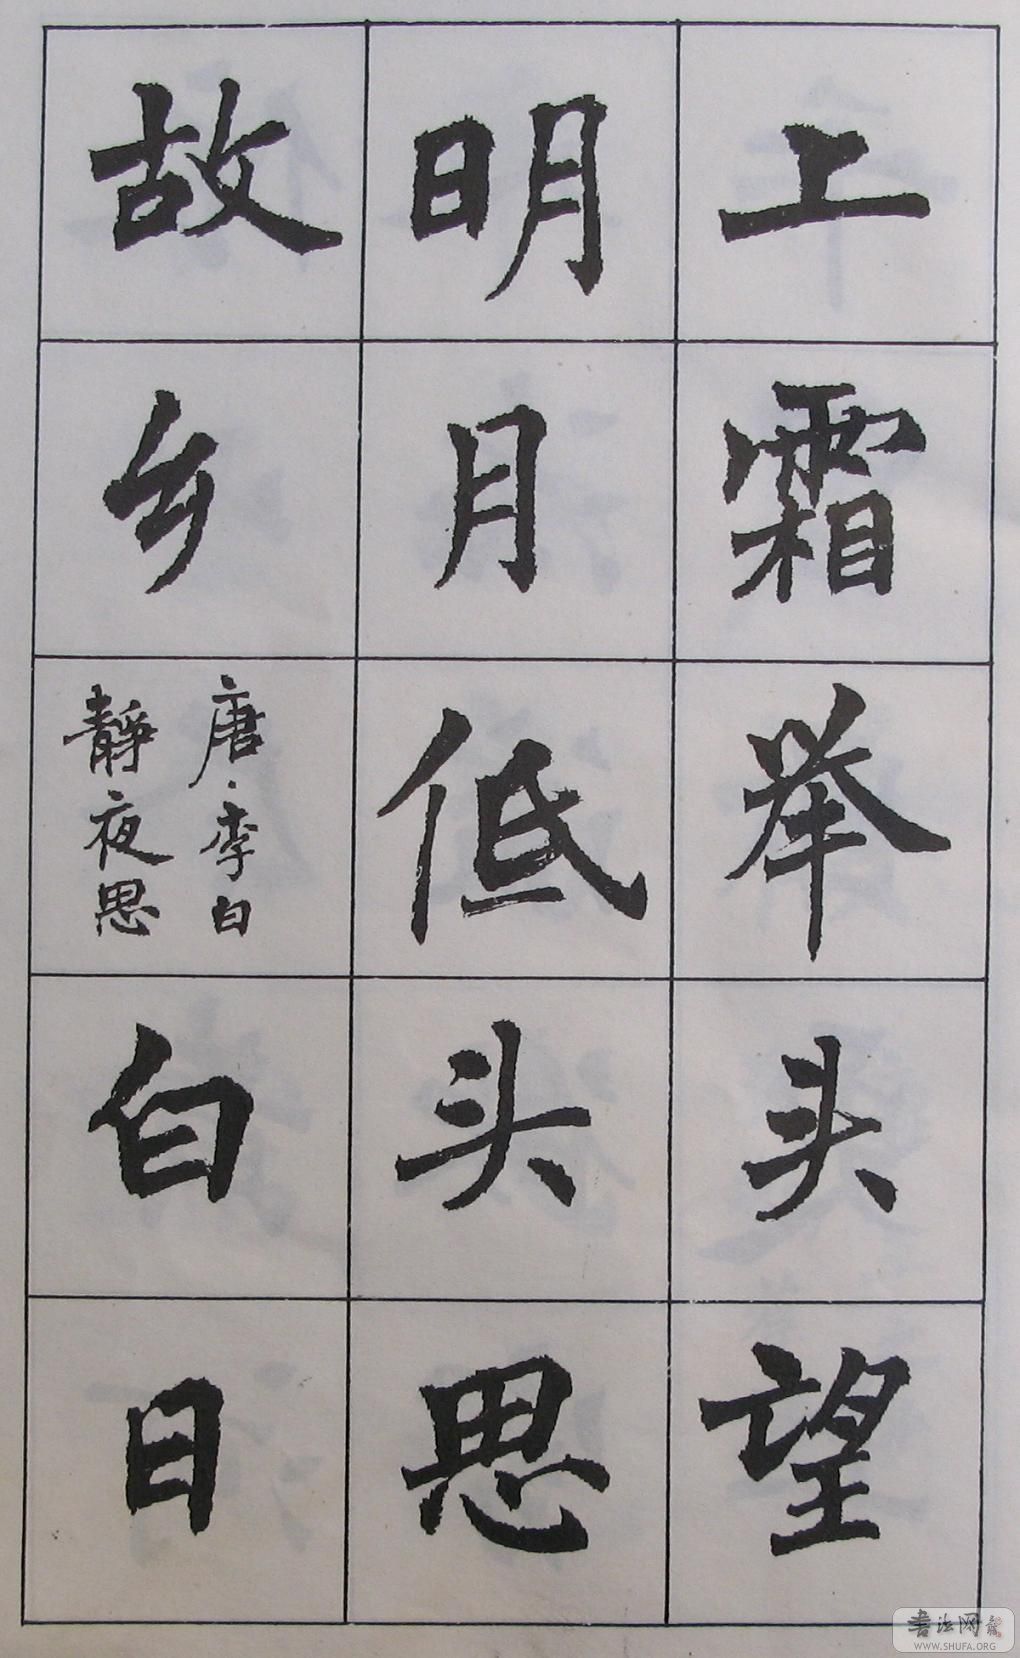 上霜举头望
明月低头思
故乡
唐·李白
静夜思
白日
书法网
WWW.SHUFA.ORG